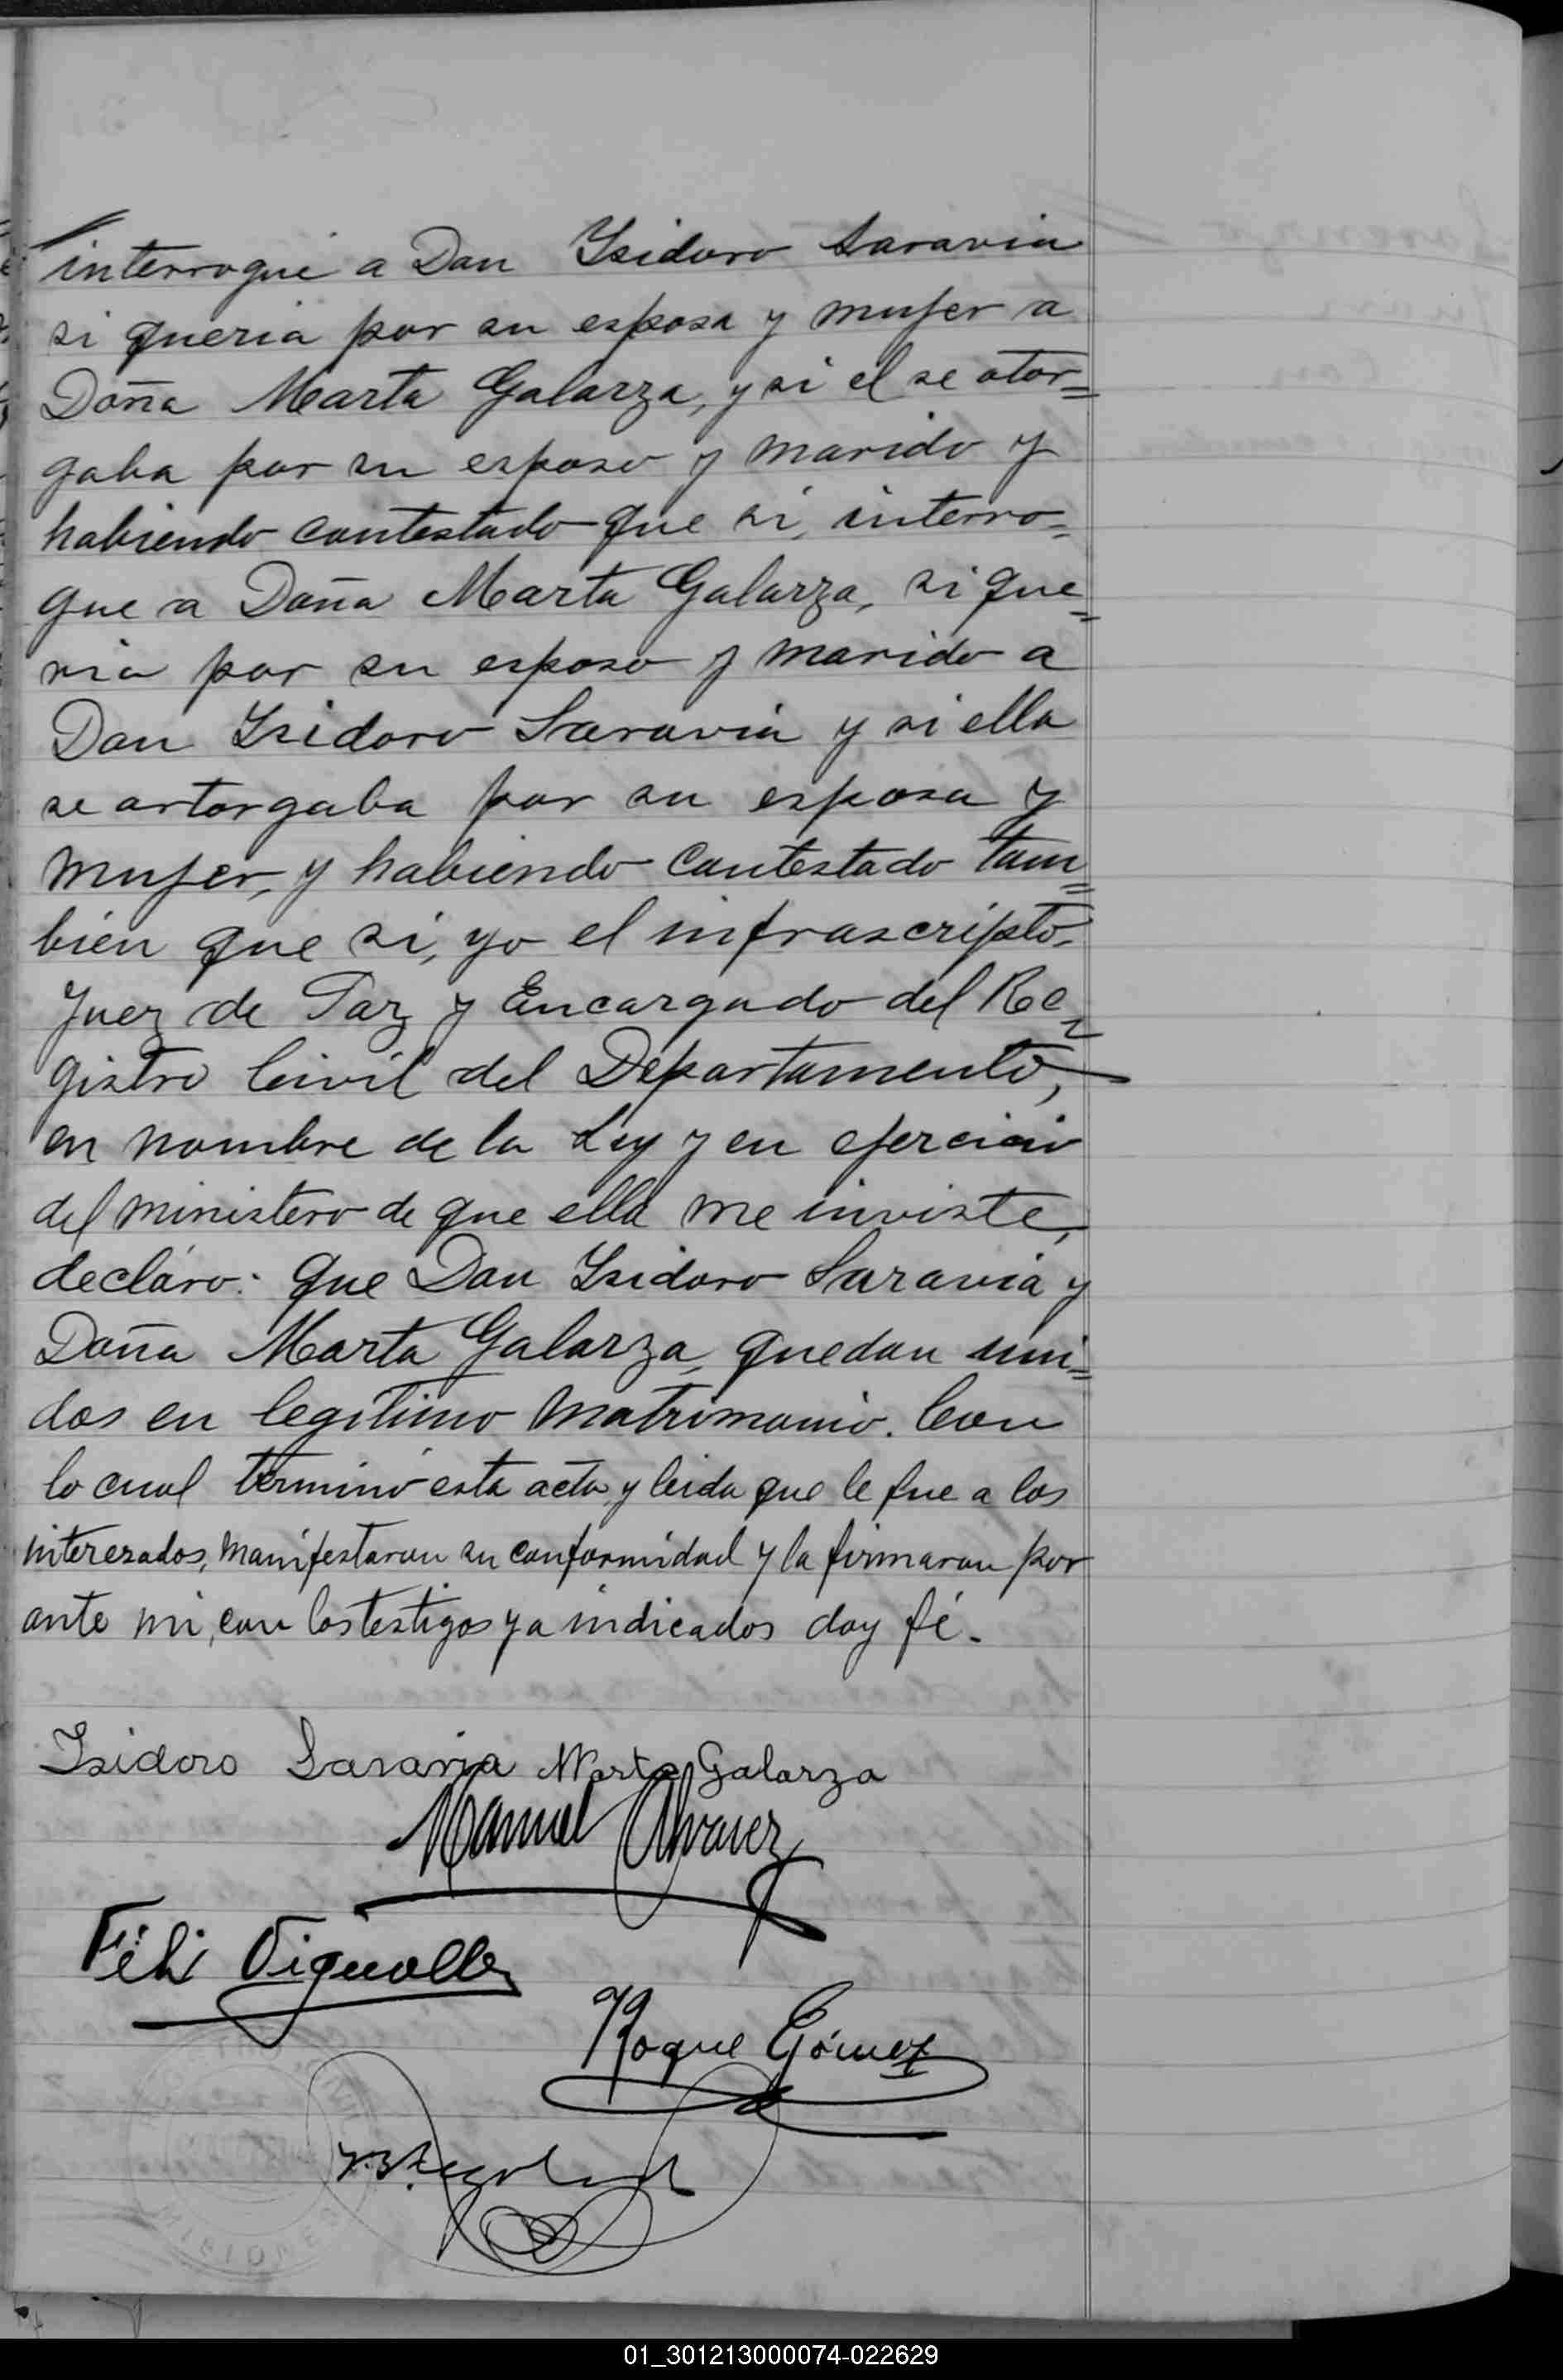 interrogué a Don Isidoro Saravia
si queria por su esposa y mujer a
Doña Marta Galarza, y si el se otor=
gaba por su esposo y marido y
habiendo contestado que si, interro=
gue a Doña Marta Galarza, si que=
ria por su esposo y marido a
Don Isidoro Saravia y si ella
se artorgaba por su esposa y
mujer, y habiendo contestado tam=
bien que si, yo el infrascripto,
Juez de Paz y Encargado del Re=
gistro Civil del Departamento,
en nombre de la Ley y en ejercicio
del ministero de que ella me inviste,
decláro: que Don Isidoro Saravia y
Doña Marta Galarza, quedan uni=
dos en legítimo matrimonio. Con
lo cual terminó esta acta, y leida que le fue a los
interezados, manifestaron su conformidad y la firmaron por
ante mi, con los testigos ya indicados doy fé.
Isidoro Saravia Marta Galarza
Manuel Alvarez
Féli Vignolles
Roque Gómez
MISIONES
01_301213000074-022629